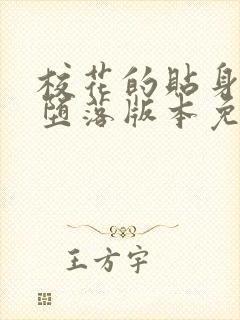 校花的贴身
堕落版本免
王方宇